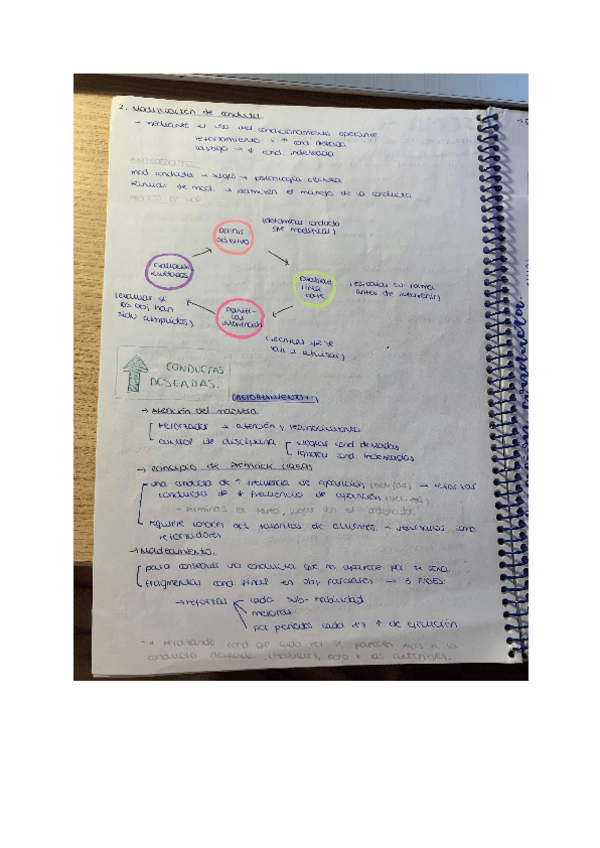 2. Modificación de conducta.
→ mediante el uso del condicionamiento operante
reforzamiento → ↑ cond. deseada
castigo → ↓ cond. indeseada
ANTECEDENTES
mod conducta → surgió → psicología científica
técnicas de mod. → permiten el manejo de la conducta
PROCESO DE MOD
Definir objetivo
(determinar conducta
que modificar)
Evaluación resultados
Establecer línea base
(estudiar su forma
antes de intervenir)
(evaluar si
los obj. han
sido cumplidos)
Planificar intervención
(técnicas que se
van a utilizar)
↑ CONDUCTAS
DESEADAS.
(REFORZAMIENTO +)
→ Atención del maestro
reforzador → atención y reconocimiento
control de disciplina
elogiar cond. deseadas
ignorar cond. indeseadas
→ Principio de Premack (1959)
una conducta de ↑ frecuencia de aparición → reforzar
conductas de ↓ frecuencia de aparición
- terminas la tarea, juegas con el ordenador.
requiere conocer act. favoritas de alumnos → usarlas como
reforzadores
→ Moldeamiento.
para conseguir una conducta que no aparece por sí sola
fragmentar cond. final en obj. parciales → 3 FASES:
→ reforzar
cada sub-habilidad
mejoras
por periodos cada vez ↑ de ejecución
reforzando cond que cada vez se parezcan más a la
conducta deseada